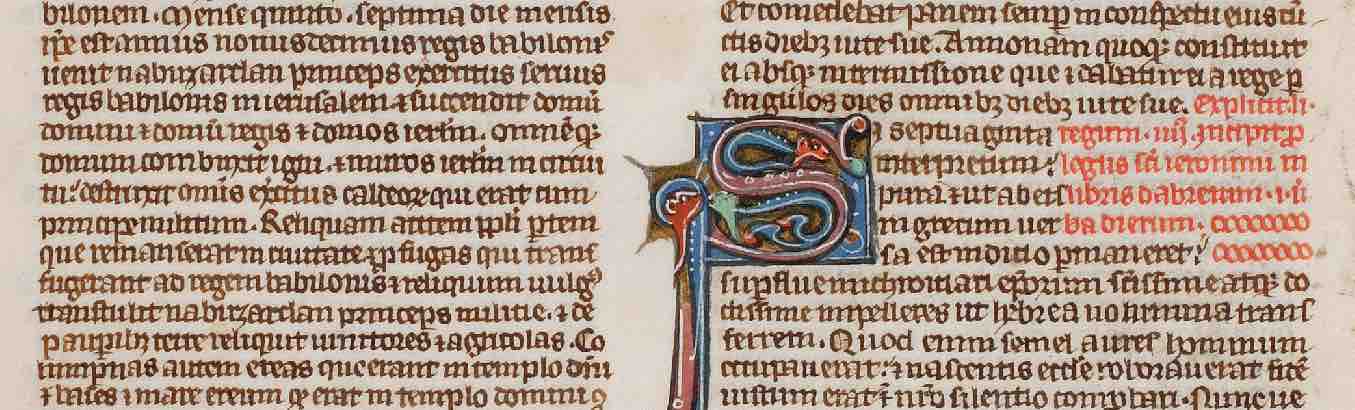 bilonem. Mense quinto. septima die mensis
ipse est annus nonusdecimus regis babilonis
uenit nabuzardan princeps exercitus seruus
regis babilonis in ierusalem ⁊ succendit domū
domini ⁊ domū regis ⁊ domos ierl̄m. omnēq;
domum combuxit igni. ⁊ muros ierl̄m in circui
tu destruxit omīs ex̄citus caldeoꝝ qui erat cum
principe militum. Reliquam autem ppl̄i ꝑtem
que remanserat in ciuitate ⁊ ꝑfugas qui trans
fugerant ad regem babilonis ⁊ reliquum uulg᷒
transtulit nabuzardan princeps militie. ⁊ de
pauꝑibꝫ terre reliquit uinitores ⁊ agricolas. Co
lumpnas autem ereas que erant in templo dn̄i
⁊ bases ⁊ mare ereum qd̄ erat in templo domini ꝯ
Et comedebat panem semꝑ in conspectu eius cū
ctis diebꝫ uite sue. Annonam quoqꝫ constituit
ei absqꝫ intermissione que ⁊ dabatur ei a rege ꝑ
singulos dies omnibꝫ diebꝫ uite sue. Explicit li
S i septuaginta regum .iiij. Incipit ꝓ
interpretum logus sc̄i ieronimi in
pura ⁊ ut ab eis libris dabreium .i. ū
in grecum uer ba dierum.
sa est editio ꝑmaneret.
suꝑflue mi chromati ep̄orum sc̄issime atqꝫ do
ctissime impelleres ut hebrea uolumina trans
ferrem. Quod enim semel aures hominum
occupauerat. ⁊ nascentis eccl̄e roborauerat fidē
iustum erat ⁊ nr̄o silentio comprobari. Nunc ue